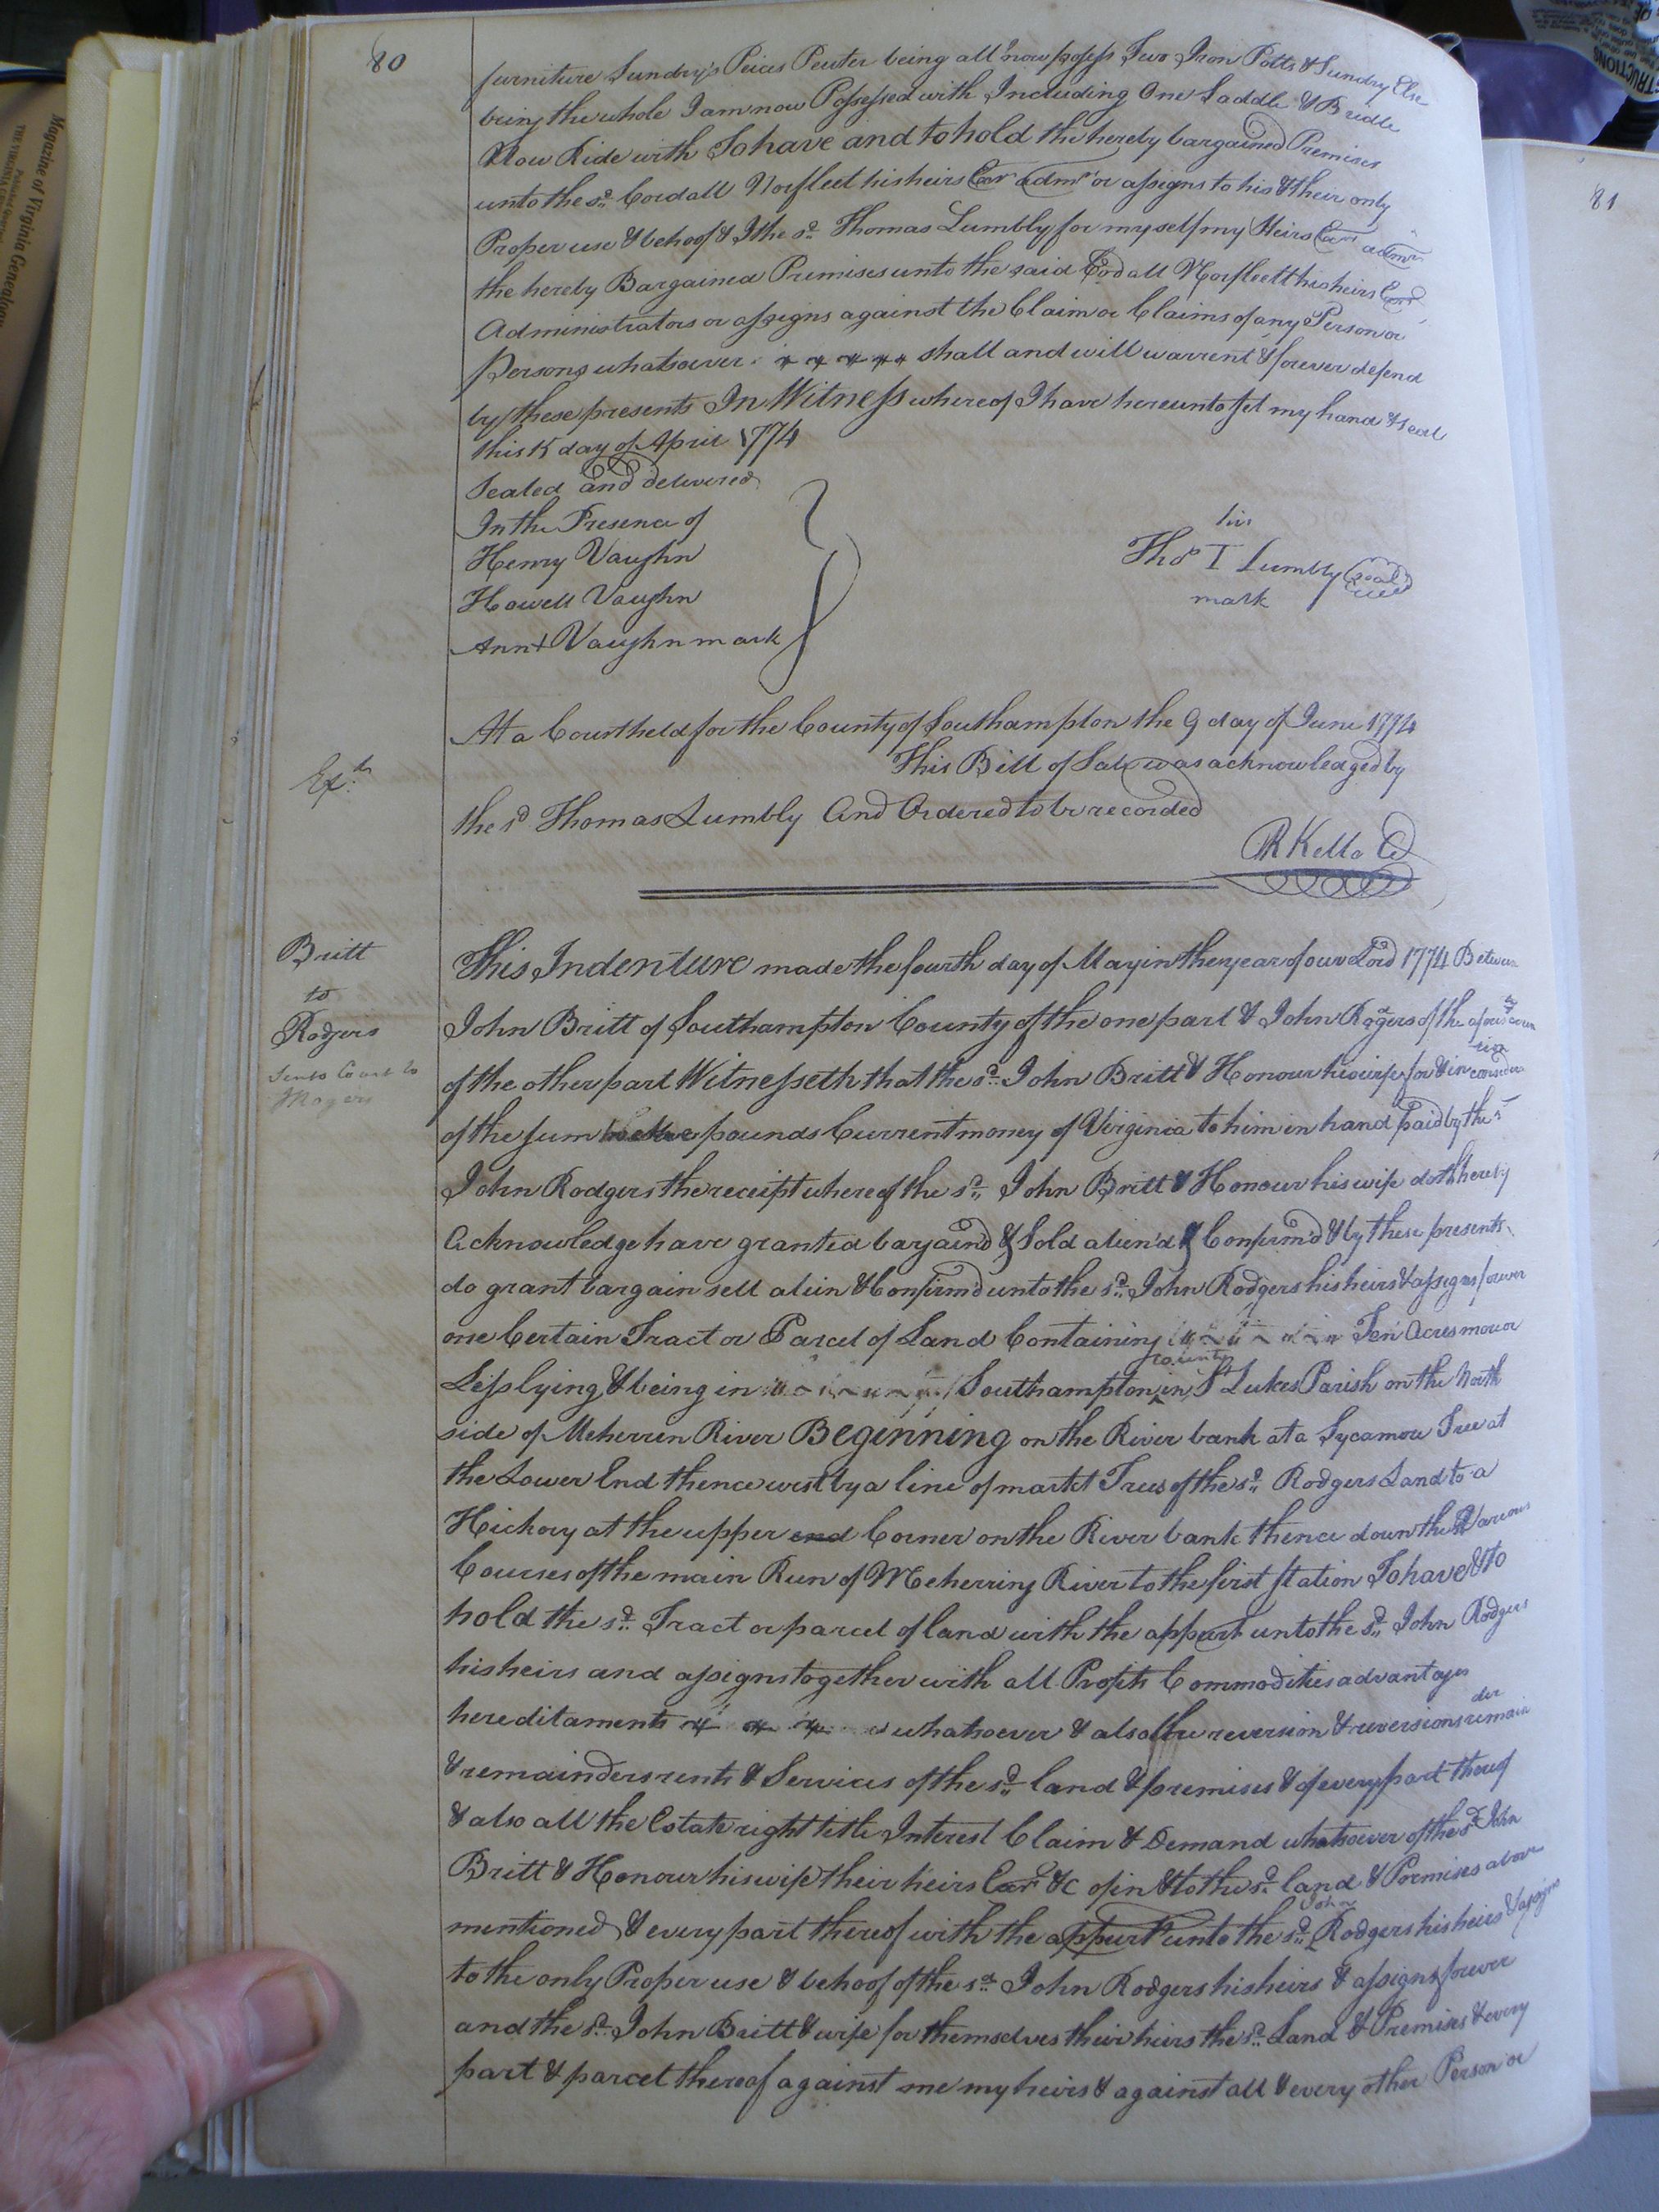 80
furniture Sundrys Peices Peuter being all now possess Two Iron Potts & Sundry Else
being the whole I am now Possessed with Including One Saddle & Bridle
Now Ride with To have and to hold the hereby bargained Premises
unto the sd. Cordall Norfleet his heirs Exrs admrs or assigns to his & their only
Proper use & behoof & I the sd. Thomas Lumbly for my self my Heirs Exrs admrs
the hereby Bargained Premises unto the said Cordall Norfleett his heirs Exrs
Administrators or assigns against the Claim or Claims of any Person or
Persons whatsoever shall and will warrent & forever defend
by these presents In Witness whereof I have hereunto set my hand & seal
this 15 day of April 1774
Sealed and delivered
In the Presence of
his
Henry Vaughn
Thos T Lumbly Seal
Howell Vaughn
mark
Ann + Vaughn mark
At a Court held for the County of Southampton the 9 day of June 1774
This Bill of Sale was acknowledged by
Exd.
the sd Thomas Lumbly And Ordered to be recorded
R Kello
Britt
to
Rodgers
J Rogers
This Indenture made the fourth day of May in the year of our Lord 1774 Between
John Britt of Southampton County of the one part & John Rogers of the
of the other part Witnesseth that the sd. John Britt & Honour his wife for & in consideration
of the sum twelve pounds Current money of Virginia to him in hand paid by the sd
John Rodgers the receipt whereof the sd. John Britt & Honour his wife doth hereby
Acknowledge have granted bargaind & Sold alien'd & Confirm'd & by these presents
do grant bargain sell alien & Confirm'd unto the sd. John Rodgers his heirs & assigns forever
one Certain Tract or Parcel of Land Containing Ten Acres more or
Less lying & being in Southampton county in St Lukes Parish on the North
side of Meherren River Beginning on the River bank at a Sycamore Tree at
the Lower End thence west by a line of markt Trees of the sd. Rodgers Land to a
Hickory at the upper end Corner on the River bank thence down the Various
Courses of the main Run of Meherring River to the first station To have & to
hold the sd. Tract or parcel of land with the appurt unto the sd. John Rodgers
his heirs and assigns together with all Profits Commodities advantages
hereditaments whatsoever & also the reversion & reversions remainder
& remainders rents & Services of the sd. land & premises & of every part thereof
& also all the Estate right title Interest Claim & Demand whatsoever of the sd John
Britt & Honour his wife their heirs Exrs &c of in & to the sd. land & Premises above
mentioned & every part thereof with the appurts unto the sd. John Rodgers his heirs & assigns
to the only Proper use & behoof of the sd. John Rodgers his heirs & assigns forever
and the sd. John Britt & wife for themselves their heirs the sd. Land & Premises & every
part & parcel thereof against me my heirs & against all & every other Person or
81
Magazine of Virginia Genealogy